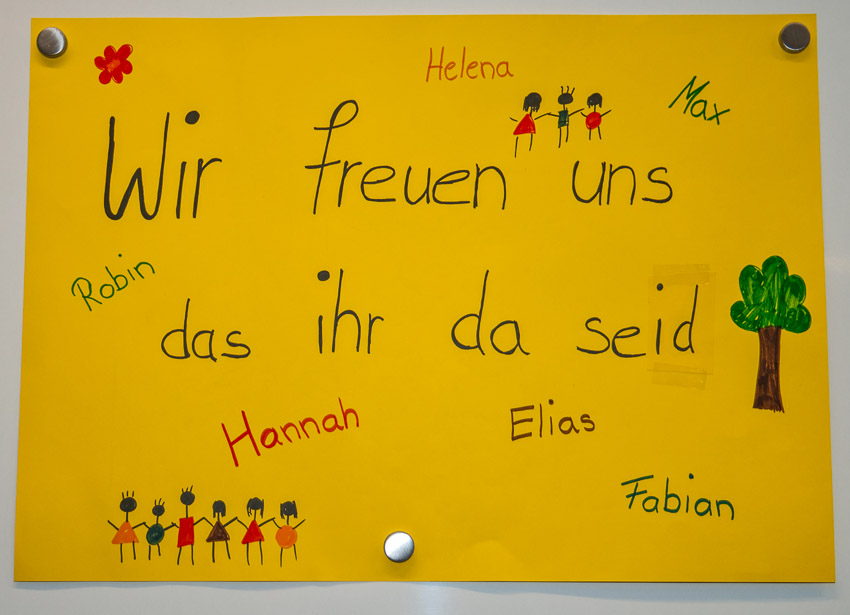 Helena
Max
Wir freuen uns
Robin
das ihr da seid
Hannah
Elias
Fabian